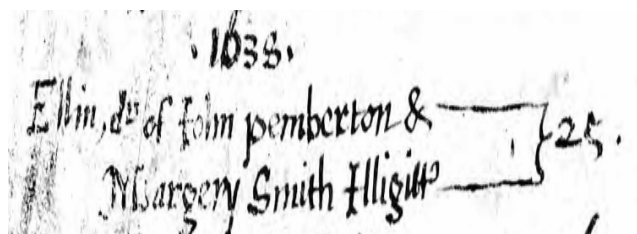 . 1638 .
Ellin, du of John pemberton & 25 .
Margery Smith Illigitt